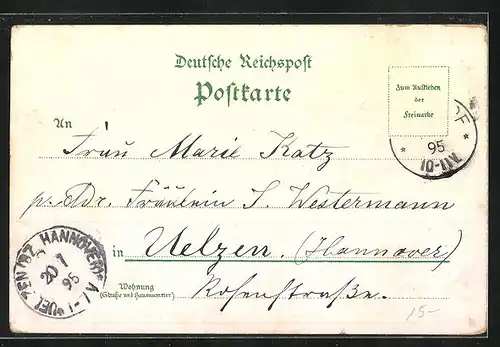 Deutsche Reichspost
Postkarte
Zum Aufkleben
der
Freimarke
95
10-11V.
An
Frau Marie Katz
p. Adr. Fräulein S. Westermann
in Uelzen. (Hannover)
Wohnung
(Straße und Hausnummer)
Rosenstraße.
UELZEN (BZ. HANNOVER)
20 1
95
15-